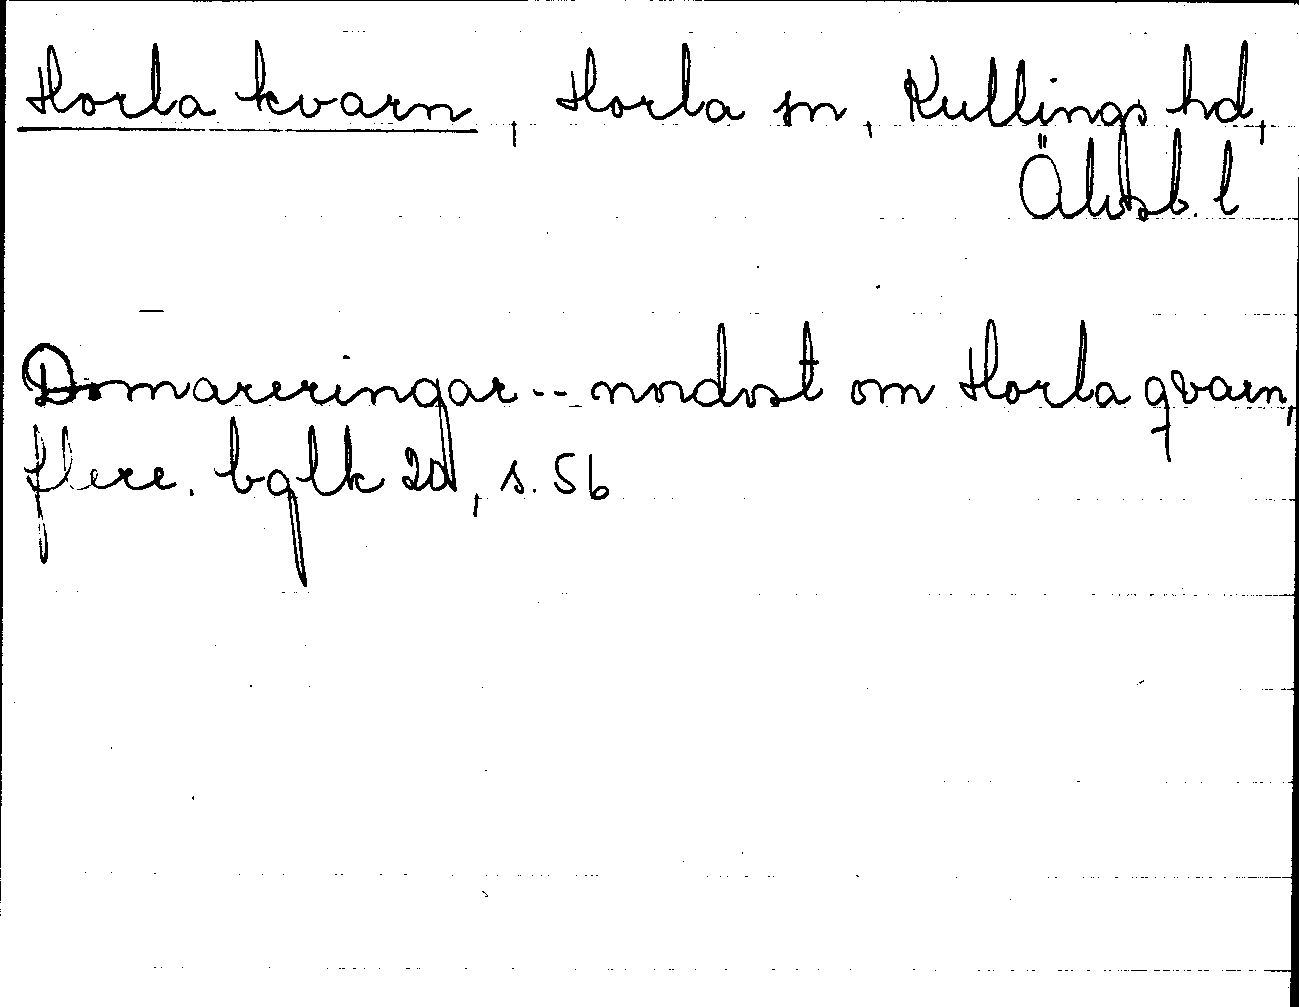 Horla kvarn, Horla sn, Kullings hd,
Älvsb. l
Domareringar -- nordost om Horla qvarn,
flere. bglk 2d, s. 56